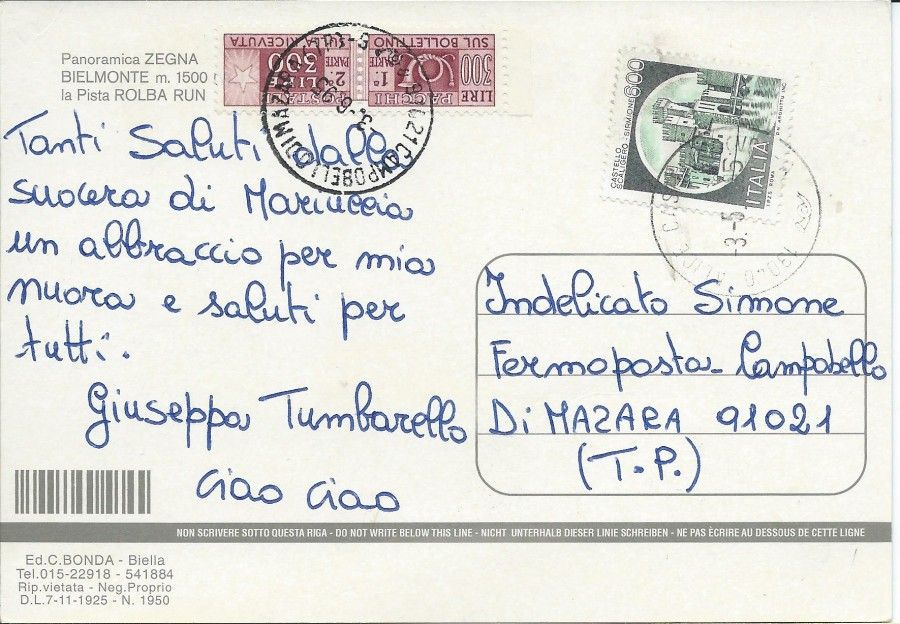 Panoramica ZEGNA
BIELMONTE m. 1500
la Pista ROLBA RUN
LIRE 300
PACCHI
1ª PARTE
SUL BOLLETTINO
2ª PARTE
LIRE 300
RICEVUTA
91021 CAMPOBELLO DI MAZARA
600
CASTELLO SCALIGERO - SIRMIONE
ITALIA
Tanti Saluti dalla
suocera di Mariuccia
un abbraccio per mia
nuora e saluti per
tutti.
Giuseppa Tumbarello
ciao ciao
Indelicato Simone
Fermoposta - Campobello
Di MAZARA 91021
(T.P.)
NON SCRIVERE SOTTO QUESTA RIGA - DO NOT WRITE BELOW THIS LINE - NICHT UNTERHALB DIESER LINIE SCHREIBEN - NE PAS ÈCRIRE AU DESSOUS DE CETTE LIGNE
Ed.C.BONDA - Biella
Tel.015-22918 - 541884
Rip.vietata - Neg.Proprio
D.L.7-11-1925 - N. 1950